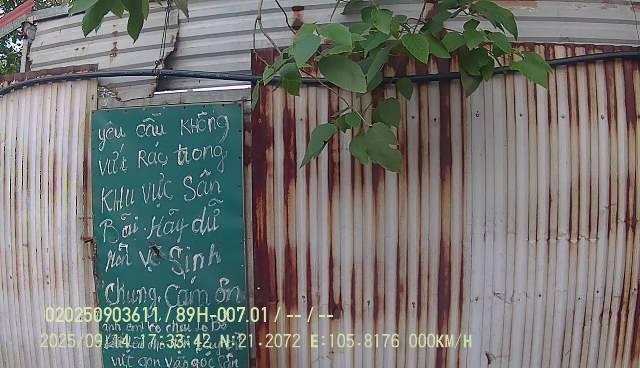 yêu cầu không
vứt Rác trong
KHU VỰC SÂN
BÃI. Hãy dữ
Vệ Sinh
Chung. Cám ơn
020250903611 / 89H-007.01 / -- / --
anh em
2025/09/14 17:33:42 N:21.2072 E:105.8176 000KM/H
vứt gọn vào góc